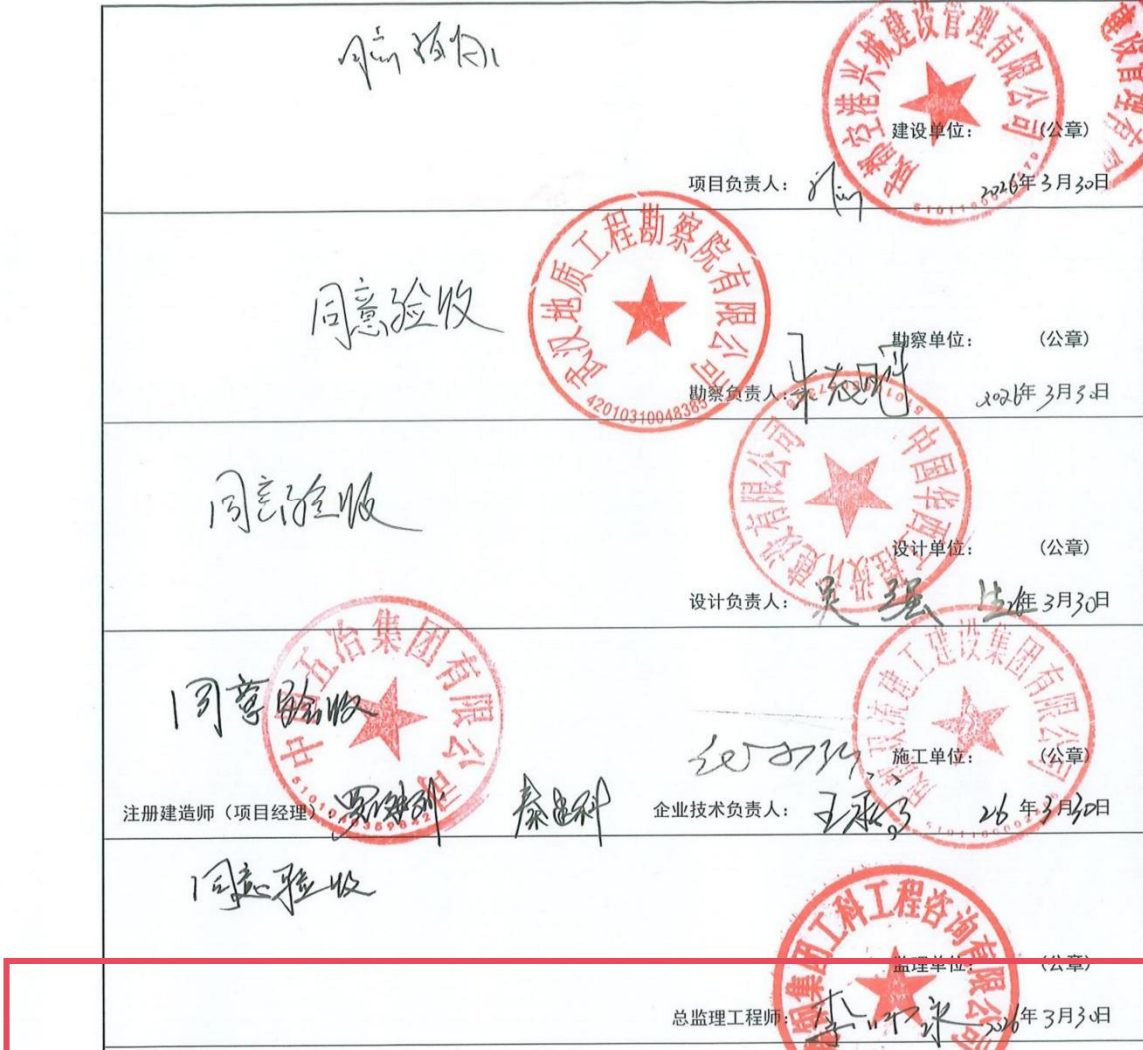 同意验收
成都空港兴城建设管理有限公司
建设单位： （公章）
项目负责人： 2026年3月30日
武汉地质工程勘察院有限公司
42010310048385
同意验收
勘察单位： （公章）
勘察负责人： 2026年3月30日
中国华西工程设计建设有限公司
同意验收
设计单位： （公章）
设计负责人：吴强 年3月30日
中国五冶集团有限公司
双流建工建设集团有限公司
同意验收
施工单位： （公章）
注册建造师（项目经理）： 企业技术负责人： 26年3月30日
同意验收
集团工科工程咨询有限公司
监理单位： （公章）
总监理工程师： 2026年3月30日